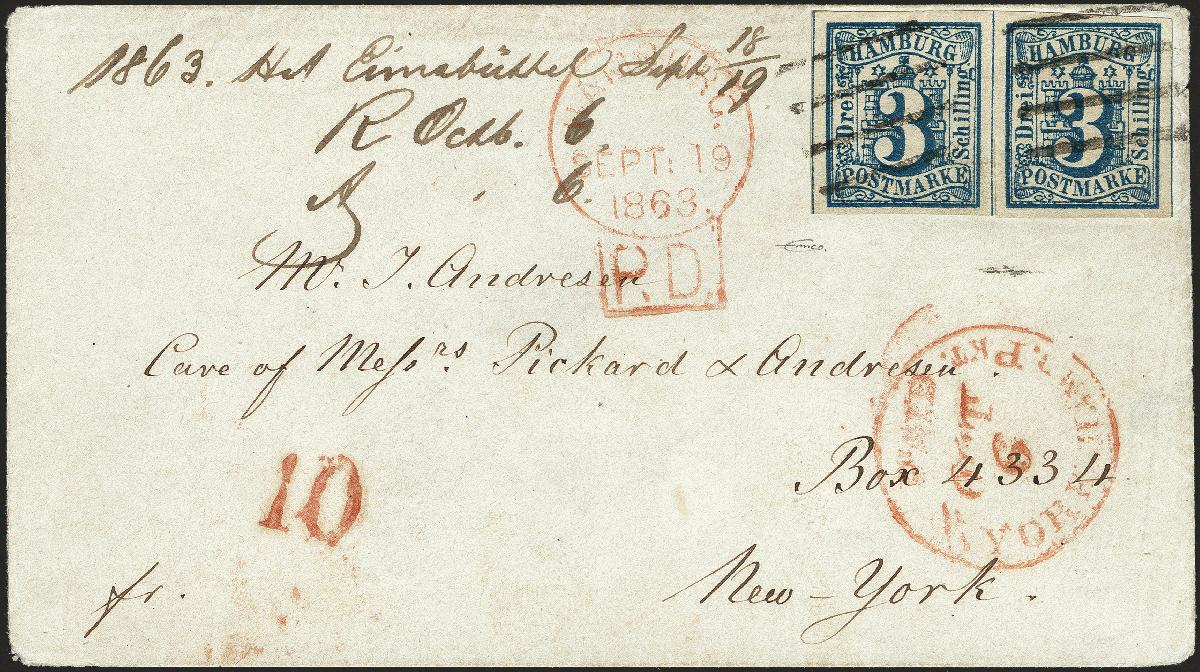 1863. Het Eimsbüttel Sept. 18/19
R Octb. 6.
A " 6.
HAMBURG
Drei Schilling.
3
POSTMARKE
HAMBURG
Drei Schilling.
3
POSTMARKE
HAMBURG.
SEPT: 19
1863.
P.D.
Enrico.
Mr. J. Andresen
Care of Messrs Pickard & Andresen.
PAID
PKT.
HAM.
OCT
6
YORK
10
Box 4334
fr.
New-York.